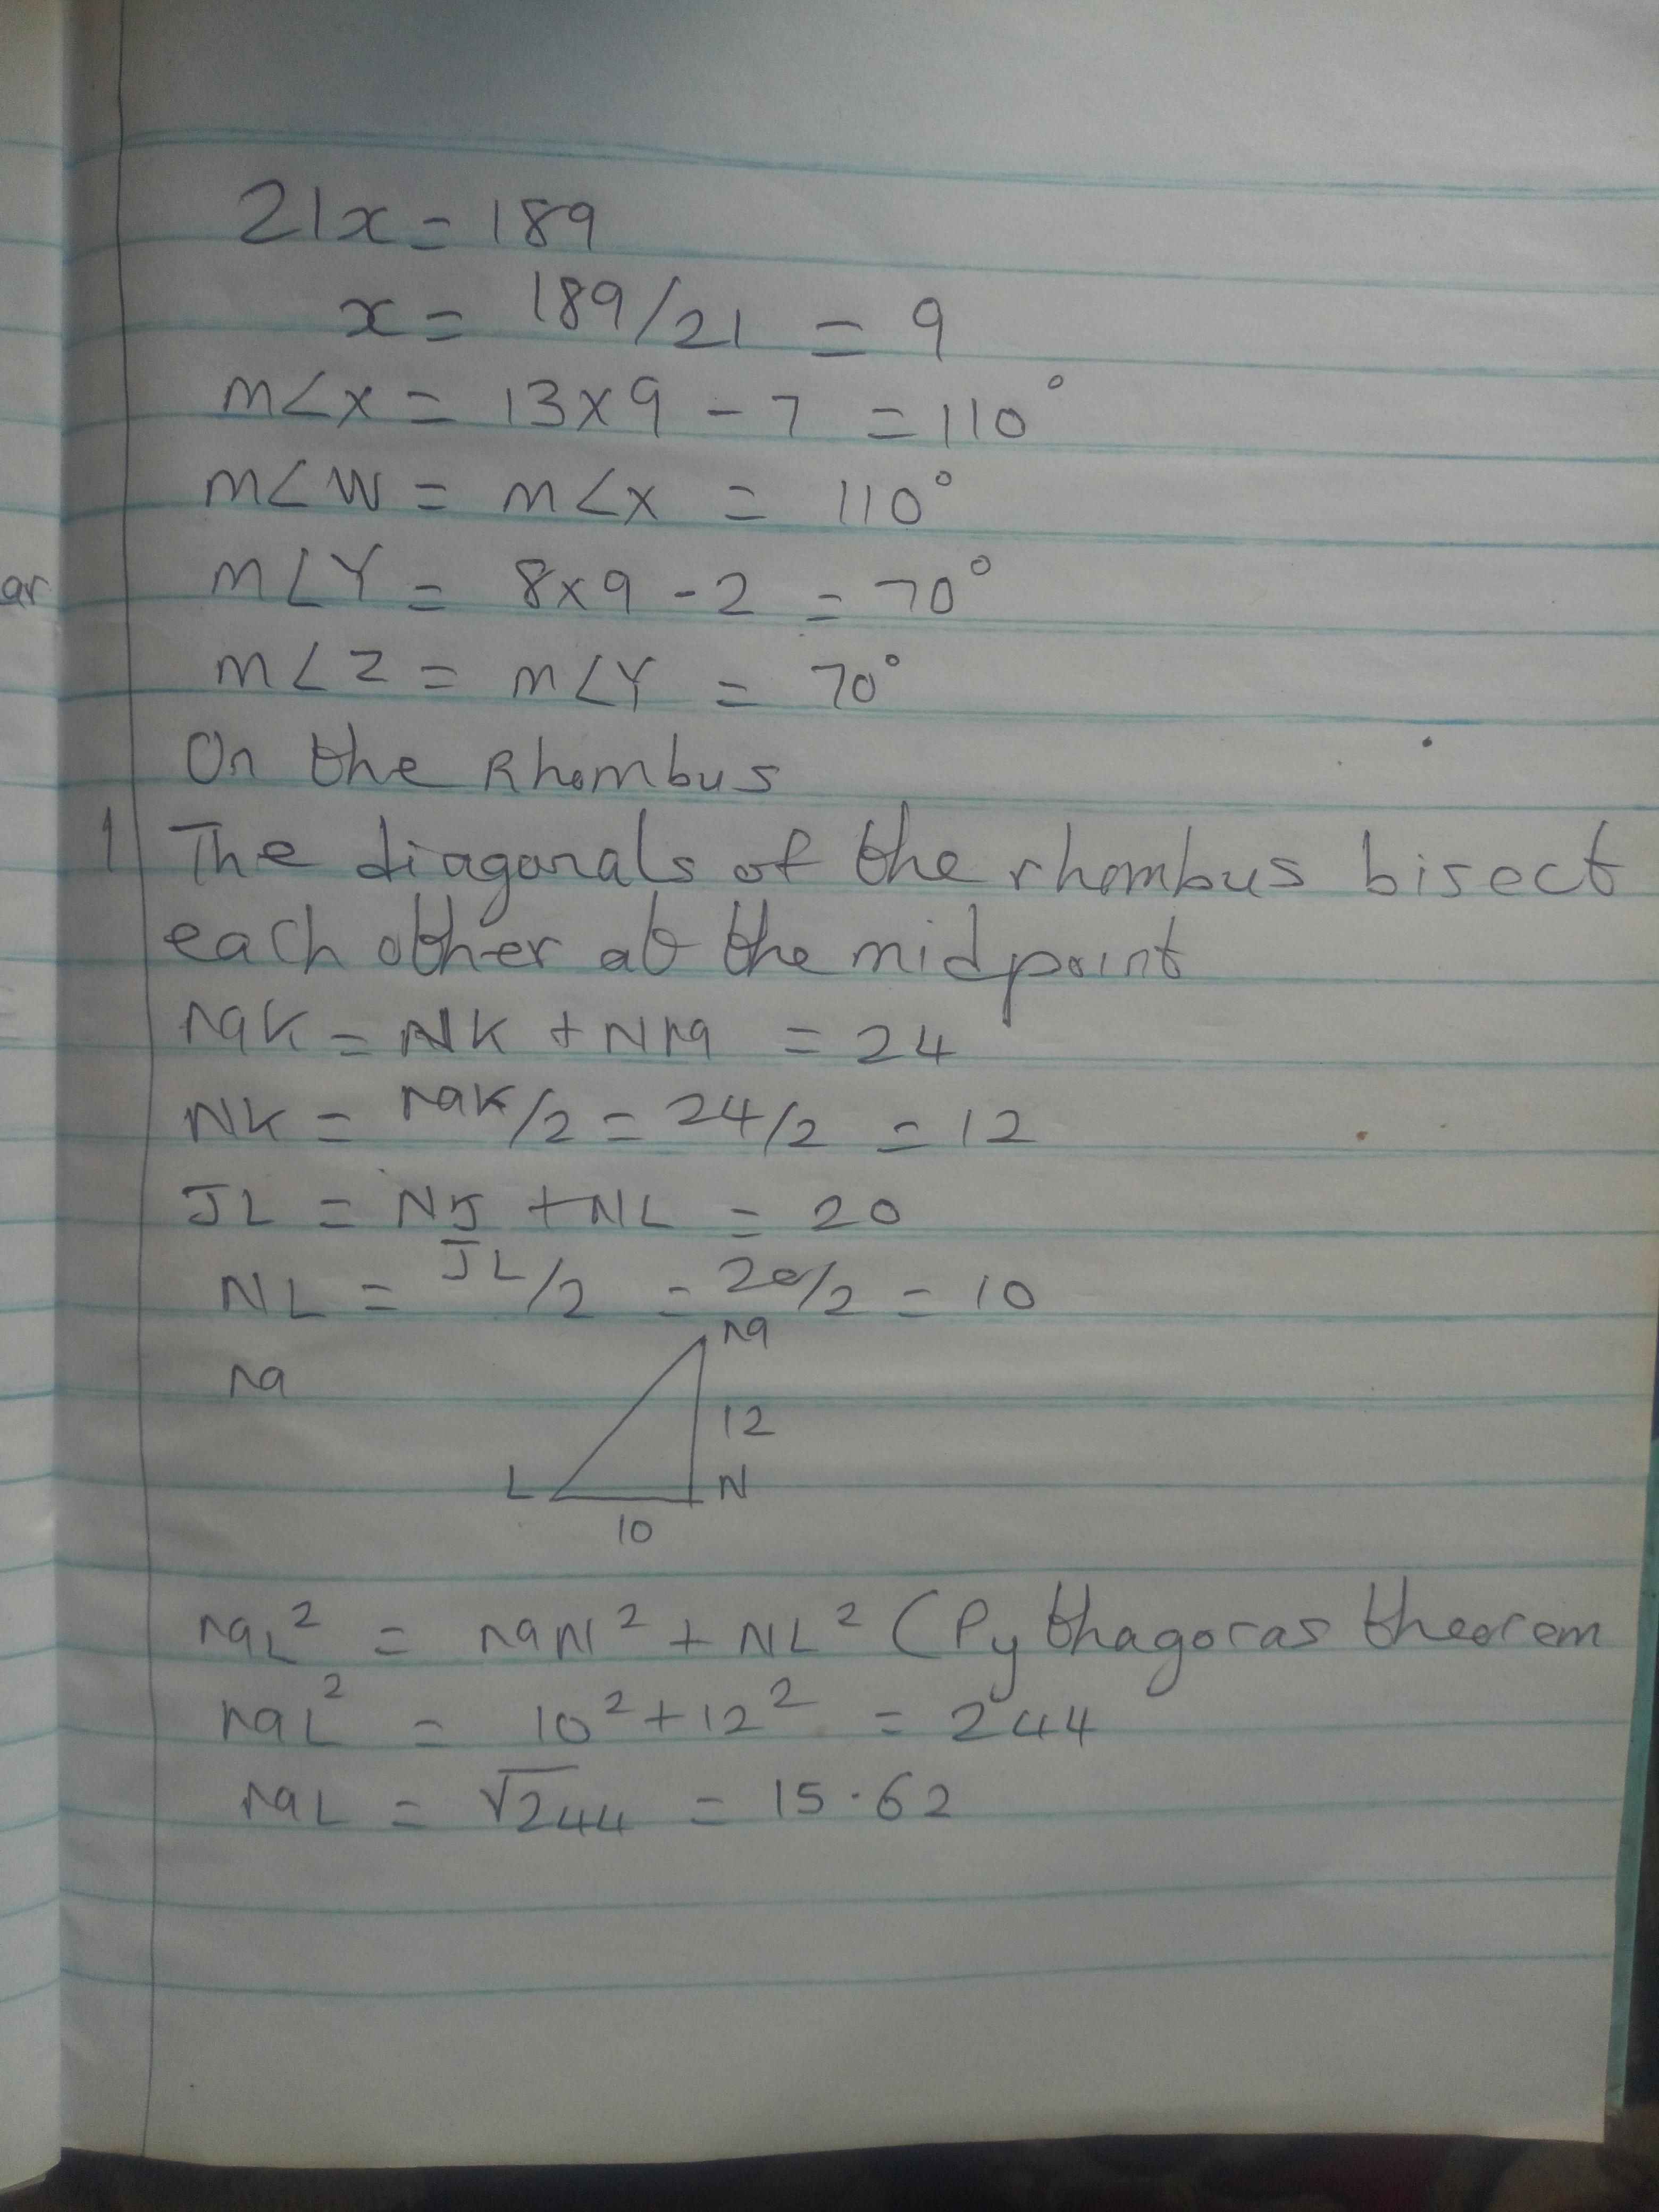 21x = 189
x = 189/21 = 9
m∠x = 13x9 - 7 = 110°
m∠W = m∠x = 110°
ar
m∠Y = 8x9 - 2 = 70°
m∠Z = m∠Y = 70°
On the Rhombus
1 The diagonals of the rhombus bisect
each other at the midpoint
MK = NK + NM = 24
NK = MK/2 = 24/2 = 12
JL = NJ + NL = 20
NL = JL/2 = 20/2 = 10
M
M
12
L N
10
ML² = MN² + NL² (Pythagoras theorem
ML² = 10² + 12² = 244
ML = √244 = 15.62